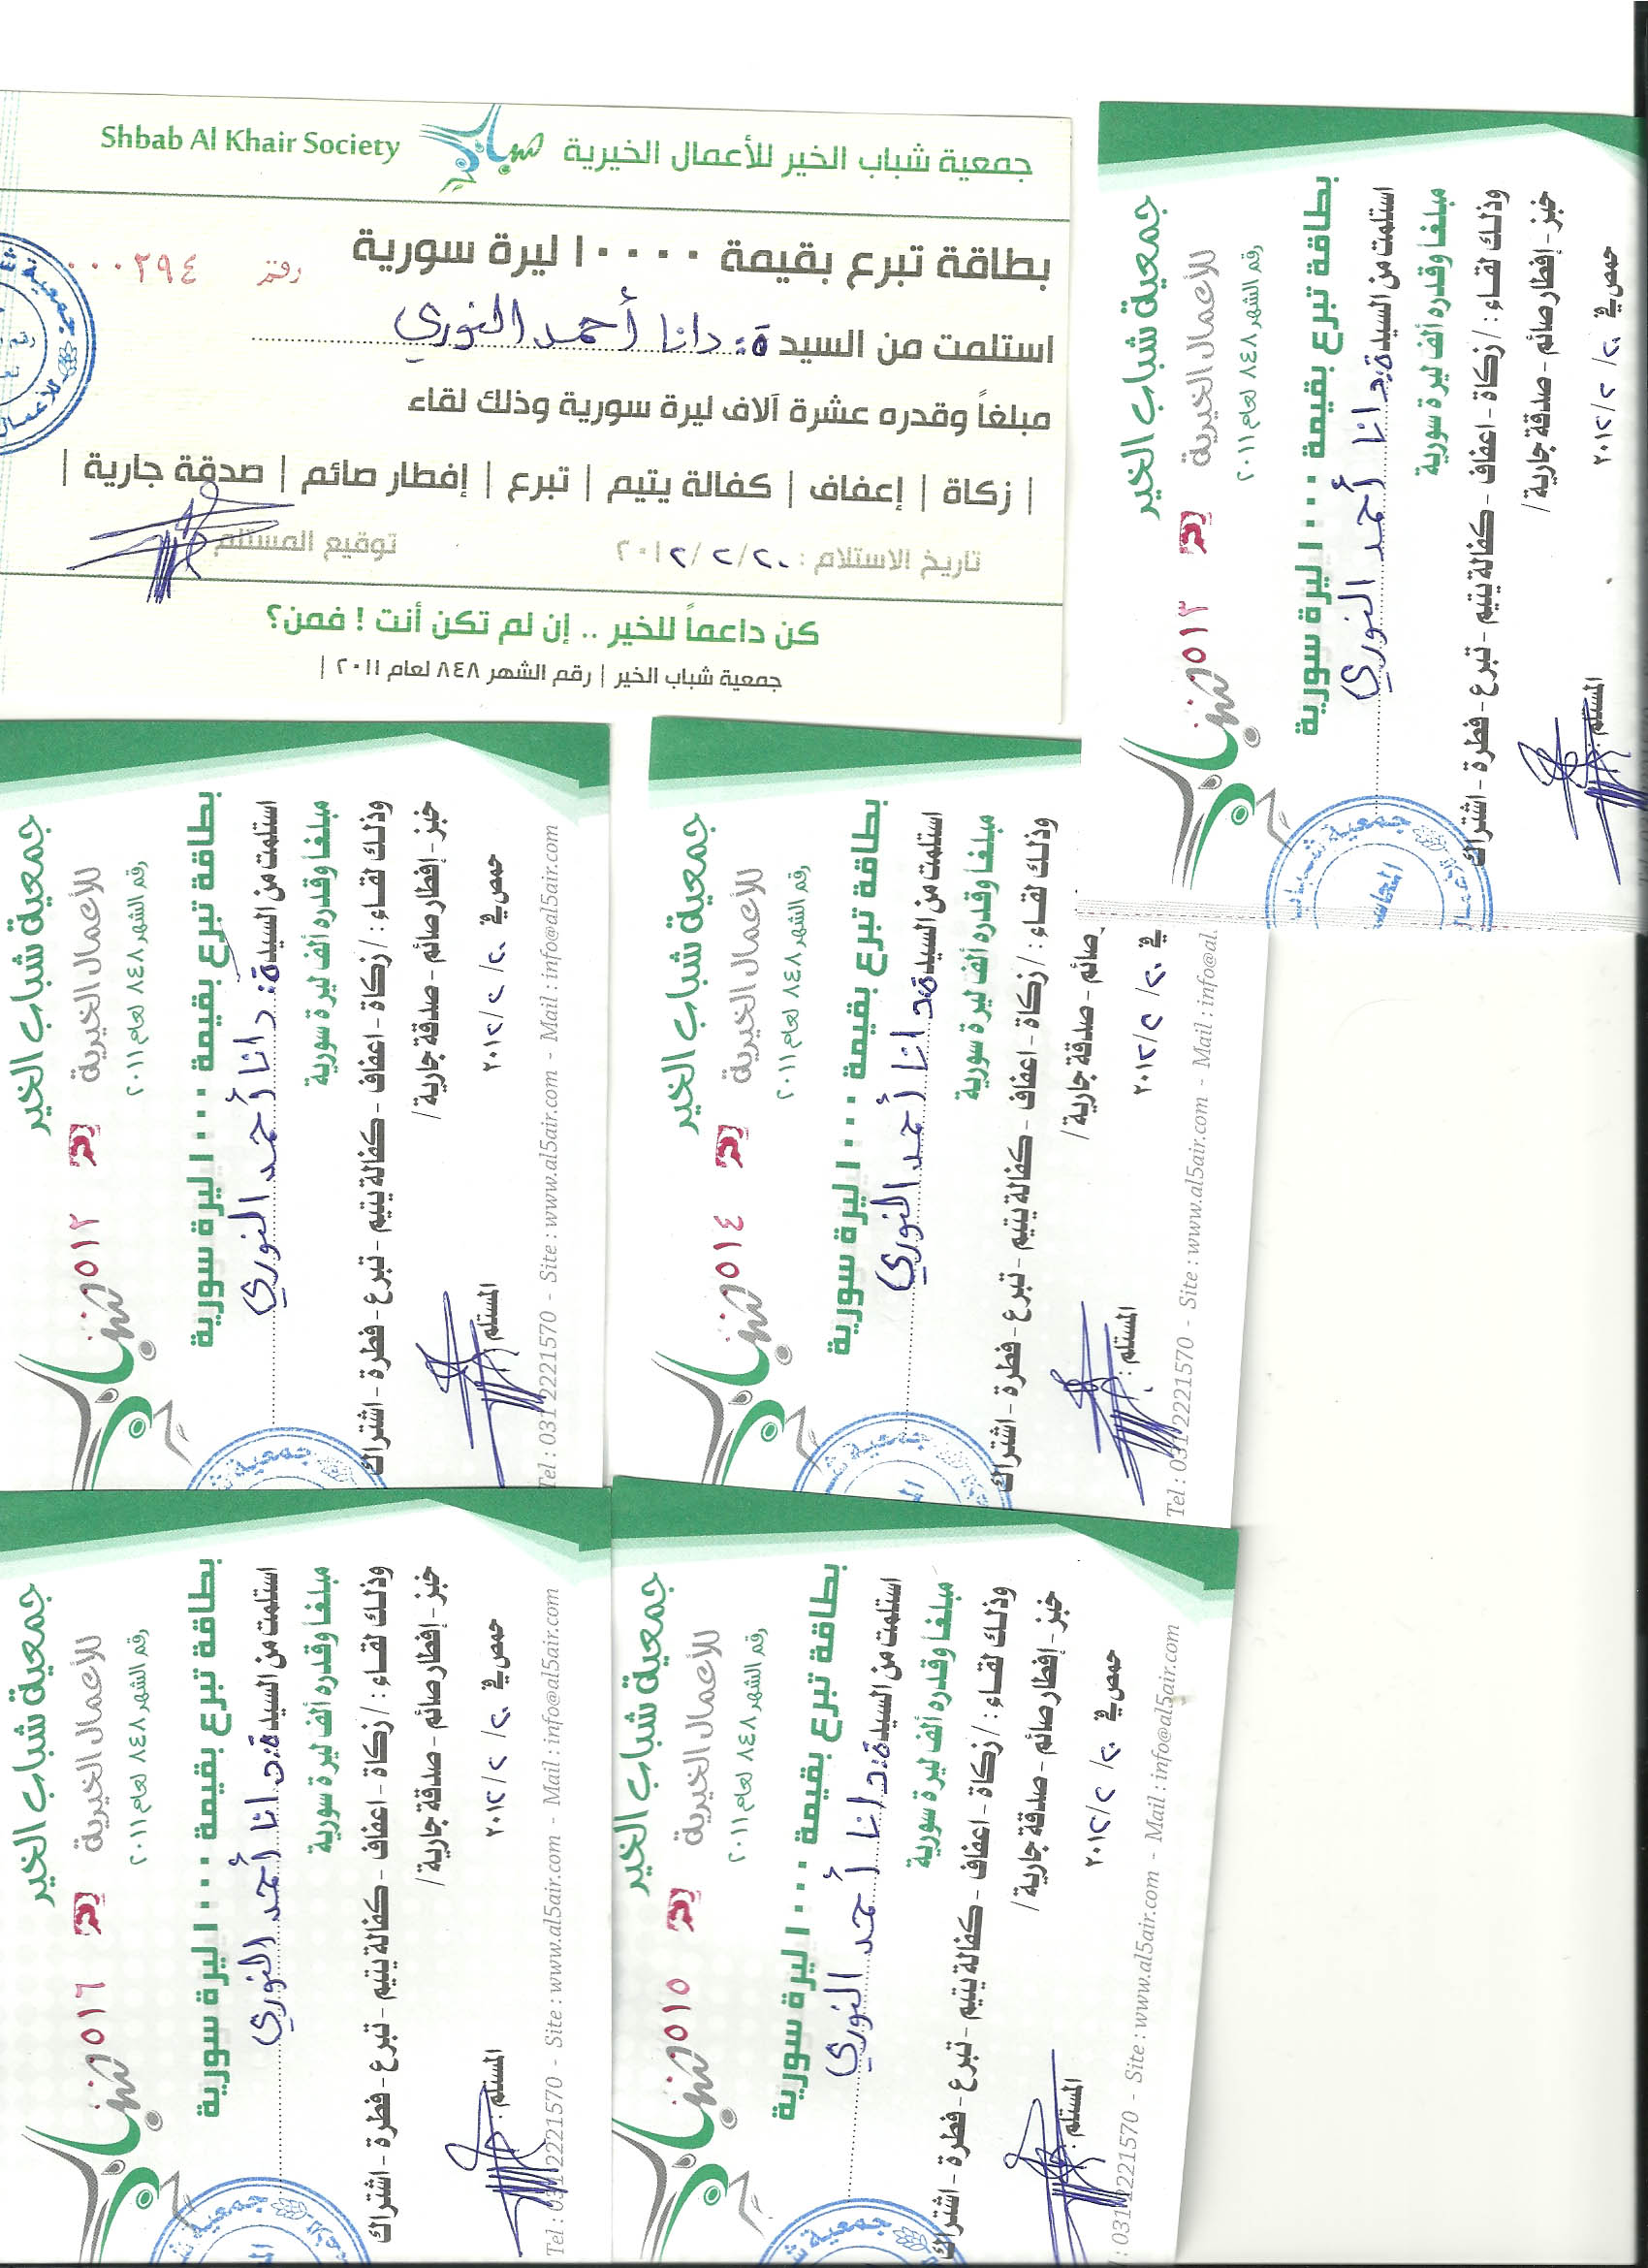 Shbab Al Khair Society
جمعية شباب الخير للأعمال الخيرية
بطاقة تبرع بقيمة ١٠٠٠٠ ليرة سورية
رقم ٠٠٠٢٩٤
استلمت من السيد ة: دانا أحمد النوري
مبلغاً وقدره عشرة آلاف ليرة سورية وذلك لقاء
| زكاة | إعفاف | كفالة يتيم | تبرع | إفطار صائم | صدقة جارية |
تاريخ الاستلام : ٢٠/٢/٢٠١٢
توقيع المستلم
كن داعماً للخير .. إن لم تكن أنت ! فمن؟
جمعية شباب الخير | رقم الشهر ٨٤٨ لعام ٢٠١١ |
جمعية شباب الخير
للأعمال الخيرية
رقم الشهر ٨٤٨ لعام ٢٠١١
شباب
٠٥١٣
بطاقة تبرع بقيمة ١٠٠٠ ليرة سورية
استلمت من السيدة: دانا أحمد النوري
مبلغا وقدره ألف ليرة سورية
وذلك لقاء : / زكاة - اعفاف - كفالة يتيم - تبرع - فطرة - اشتراك
خبز - إفطار صائم - صدقة جارية /
حمص في ٢٠/٢/٢٠١٢
المستلم :
جمعية شباب الخير
للأعمال الخيرية
رقم الشهر ٨٤٨ لعام ٢٠١١
شباب
٠٥١٢
بطاقة تبرع بقيمة ١٠٠٠ ليرة سورية
استلمت من السيدة: دانا أحمد النوري
مبلغا وقدره ألف ليرة سورية
وذلك لقاء : / زكاة - اعفاف - كفالة يتيم - تبرع - فطرة - اشتراك
خبز - إفطار صائم - صدقة جارية /
حمص في ٢٠/٢/٢٠١٢
المستلم
Tel : 0312221570 - Site : www.al5air.com - Mail : info@al5air.com
جمعية شباب الخير
للأعمال الخيرية
رقم الشهر ٨٤٨ لعام ٢٠١١
شباب
٠٥١٤
بطاقة تبرع بقيمة ١٠٠٠ ليرة سورية
استلمت من السيدة: دانا أحمد النوري
مبلغا وقدره ألف ليرة سورية
وذلك لقاء : / زكاة - اعفاف - كفالة يتيم - تبرع - فطرة - اشتراك
صائم - صدقة جارية /
في ٢٠/٢/٢٠١٢
المستلم :
Tel : 0312221570 - Site : www.al5air.com - Mail : info@al.
جمعية شباب الخير
للأعمال الخيرية
رقم الشهر ٨٤٨ لعام ٢٠١١
شباب
٠٥١٦
بطاقة تبرع بقيمة ١٠٠٠ ليرة سورية
استلمت من السيدة: دانا أحمد النوري
مبلغا وقدره ألف ليرة سورية
وذلك لقاء : / زكاة - اعفاف - كفالة يتيم - تبرع - فطرة - اشتراك
خبز - إفطار صائم - صدقة جارية /
حمص في ٢٠/٢/٢٠١٢
المستلم :
Tel : 0312221570 - Site : www.al5air.com - Mail : info@al5air.com
جمعية شباب الخير
للأعمال الخيرية
رقم الشهر ٨٤٨ لعام ٢٠١١
شباب
٠٥١٥
بطاقة تبرع بقيمة ١٠٠٠ ليرة سورية
استلمت من السيدة: دانا أحمد النوري
مبلغا وقدره ألف ليرة سورية
وذلك لقاء : / زكاة - اعفاف - كفالة يتيم - تبرع - فطرة - اشتراك
خبز - إفطار صائم - صدقة جارية /
حمص في ٢٠/٢/٢٠١٢
المستلم :
: 0312221570 - Site : www.al5air.com - Mail : info@al5air.com